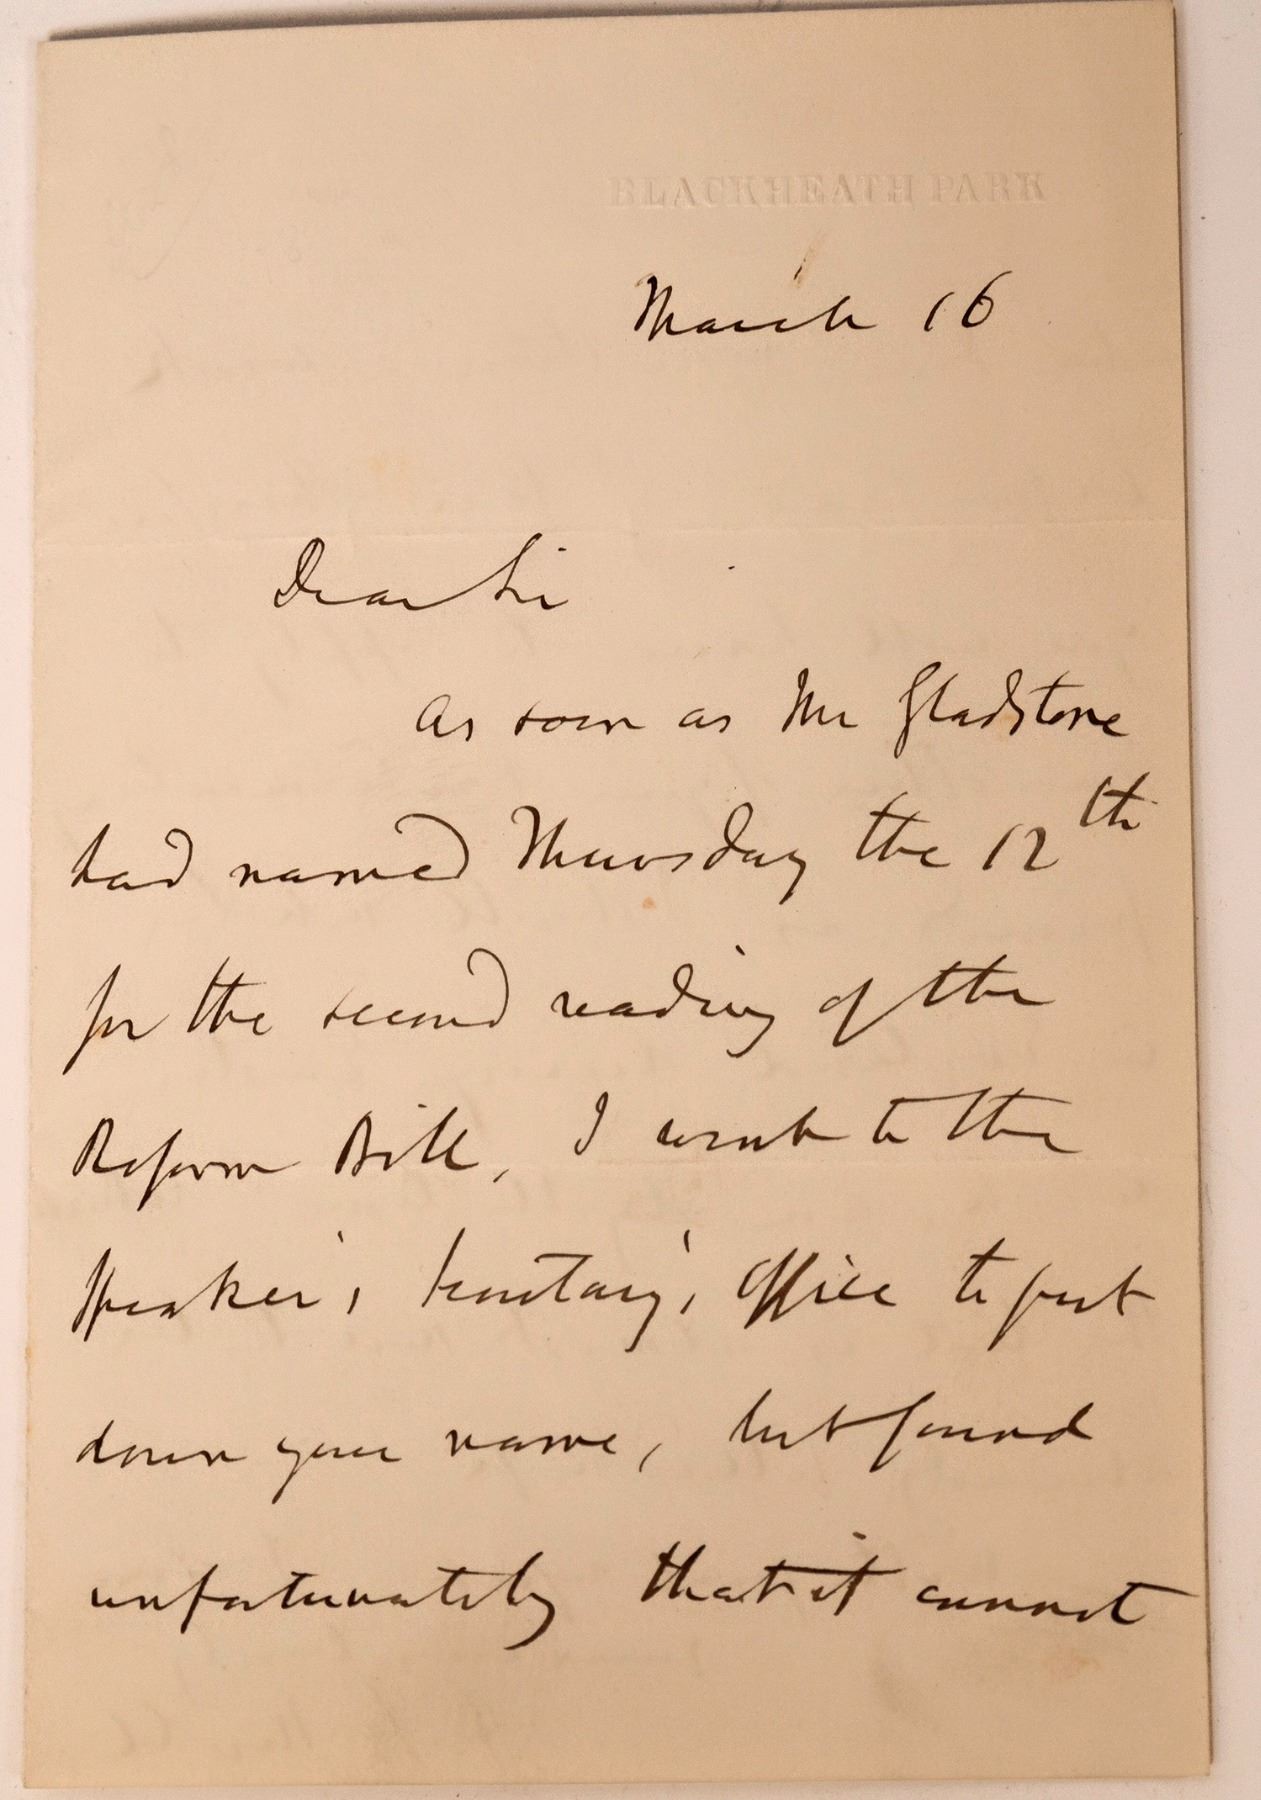 BLACKHEATH PARK
March 16
Dear Sir
As soon as Mr Gladstone
had named Thursday the 12th
for the second reading of the
Reform Bill, I went to the
Speaker's Secretary's Office to put
down your name, but found
unfortunately that it cannot